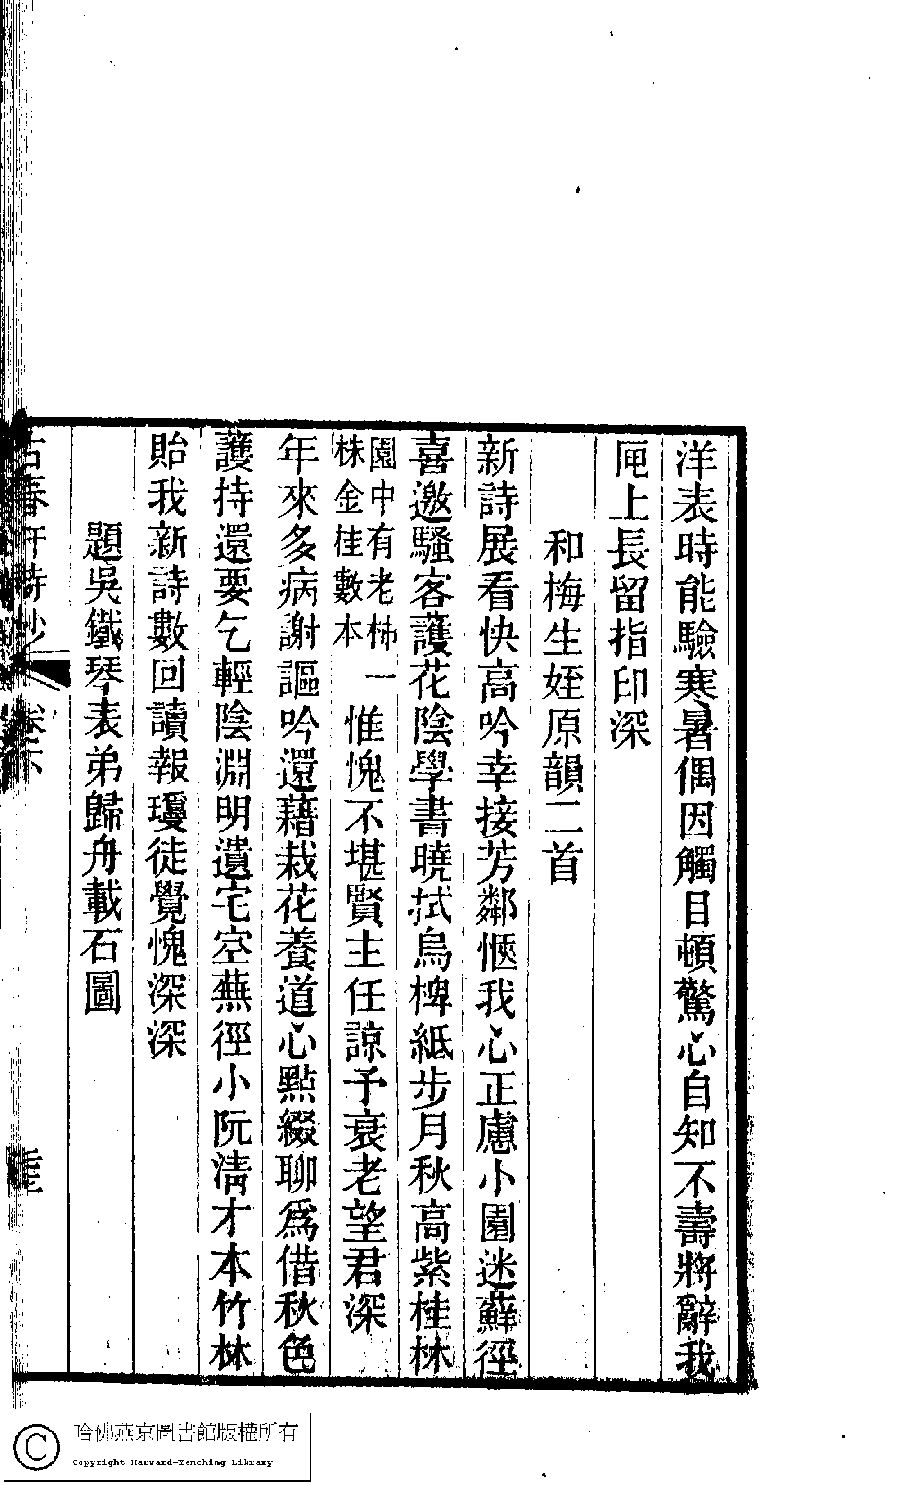 洋表時能驗寒暑偶因觸目頓驚心自知不壽將辭我
匣上長留指印深
和梅生姪原韻二首
新詩展看快高吟幸接芳鄰愜我心正慮小園迷蘚徑
喜邀騷客護花陰學書曉拭烏椑紙步月秋高紫桂林
園中有老柿一
株金桂數本
惟愧不堪賢主任諒予衰老望君深
年來多病謝謳吟還藉栽花養道心點綴聊爲借秋色
護持還要乞輕陰淵明遺宅空蕪徑小阮淸才本竹林
貽我新詩數回讀報瓊徒覺愧深深
題吳鐵琴表弟歸舟載石圖
春 詩鈔 卷下
哈佛燕京圖書館版權所有
Copyright Harvard-Yenching Library